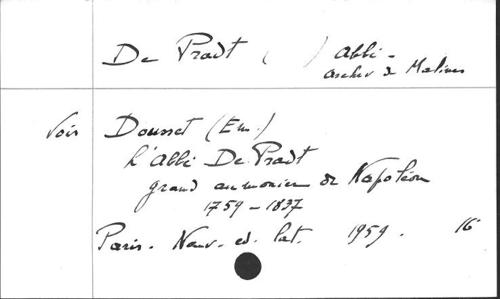 De Pradt ( ) abbé -
archev de Malines
Voir Dousset (Em.)
L'abbé De Pradt
grand aumonier de Napoléon
1759 - 1837
Paris. Nouv. ed. lat. 1959. 16°